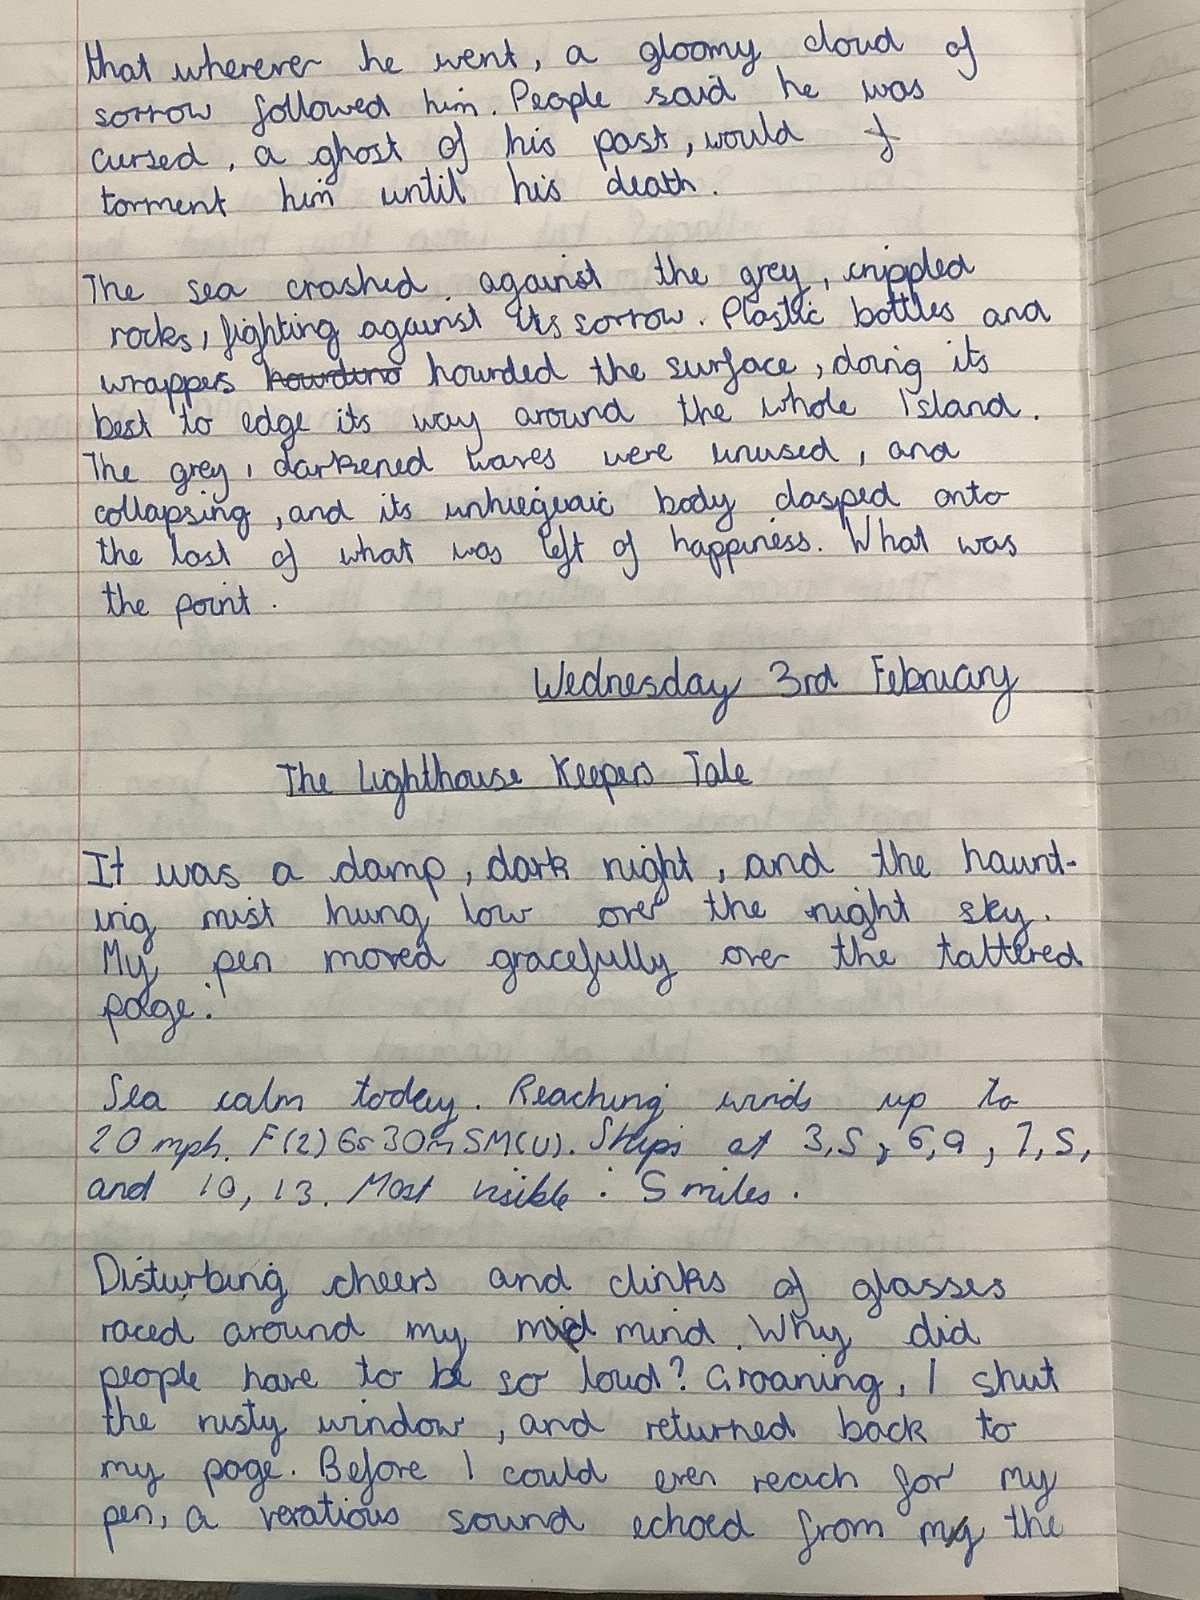 that wherever he went, a gloomy cloud of
sorrow followed him. People said he was
cursed, a ghost of his past, would
torment him until his death.
The sea crashed against the grey, crippled
rocks, fighting against its sorrow. Plastic bottles and
wrappers hourded the surface, doing its
best to edge its way around the whole Island.
The grey, darkened waves were unused, and
collapsing, and its body clasped onto
the last of what was left of happiness. What was
the point.
Wednesday 3rd February
The Lighthouse Keepers Tale
It was a damp, dark night, and the haunt-
ing mist hung low over the night sky.
My pen moved gracefully over the tattered
page:
Sea calm today. Reaching winds up to
20mph. Ships at 3,5, 6,9, 7,5,
and 10, 13. Most visible: 5 miles.
Disturbing cheers and clinks of glasses
raced around my mind. Why did
people have to be so loud? Groaning, I shut
the rusty window, and returned back to
my page. Before I could even reach for my
pen, a vexatious sound echoed from the